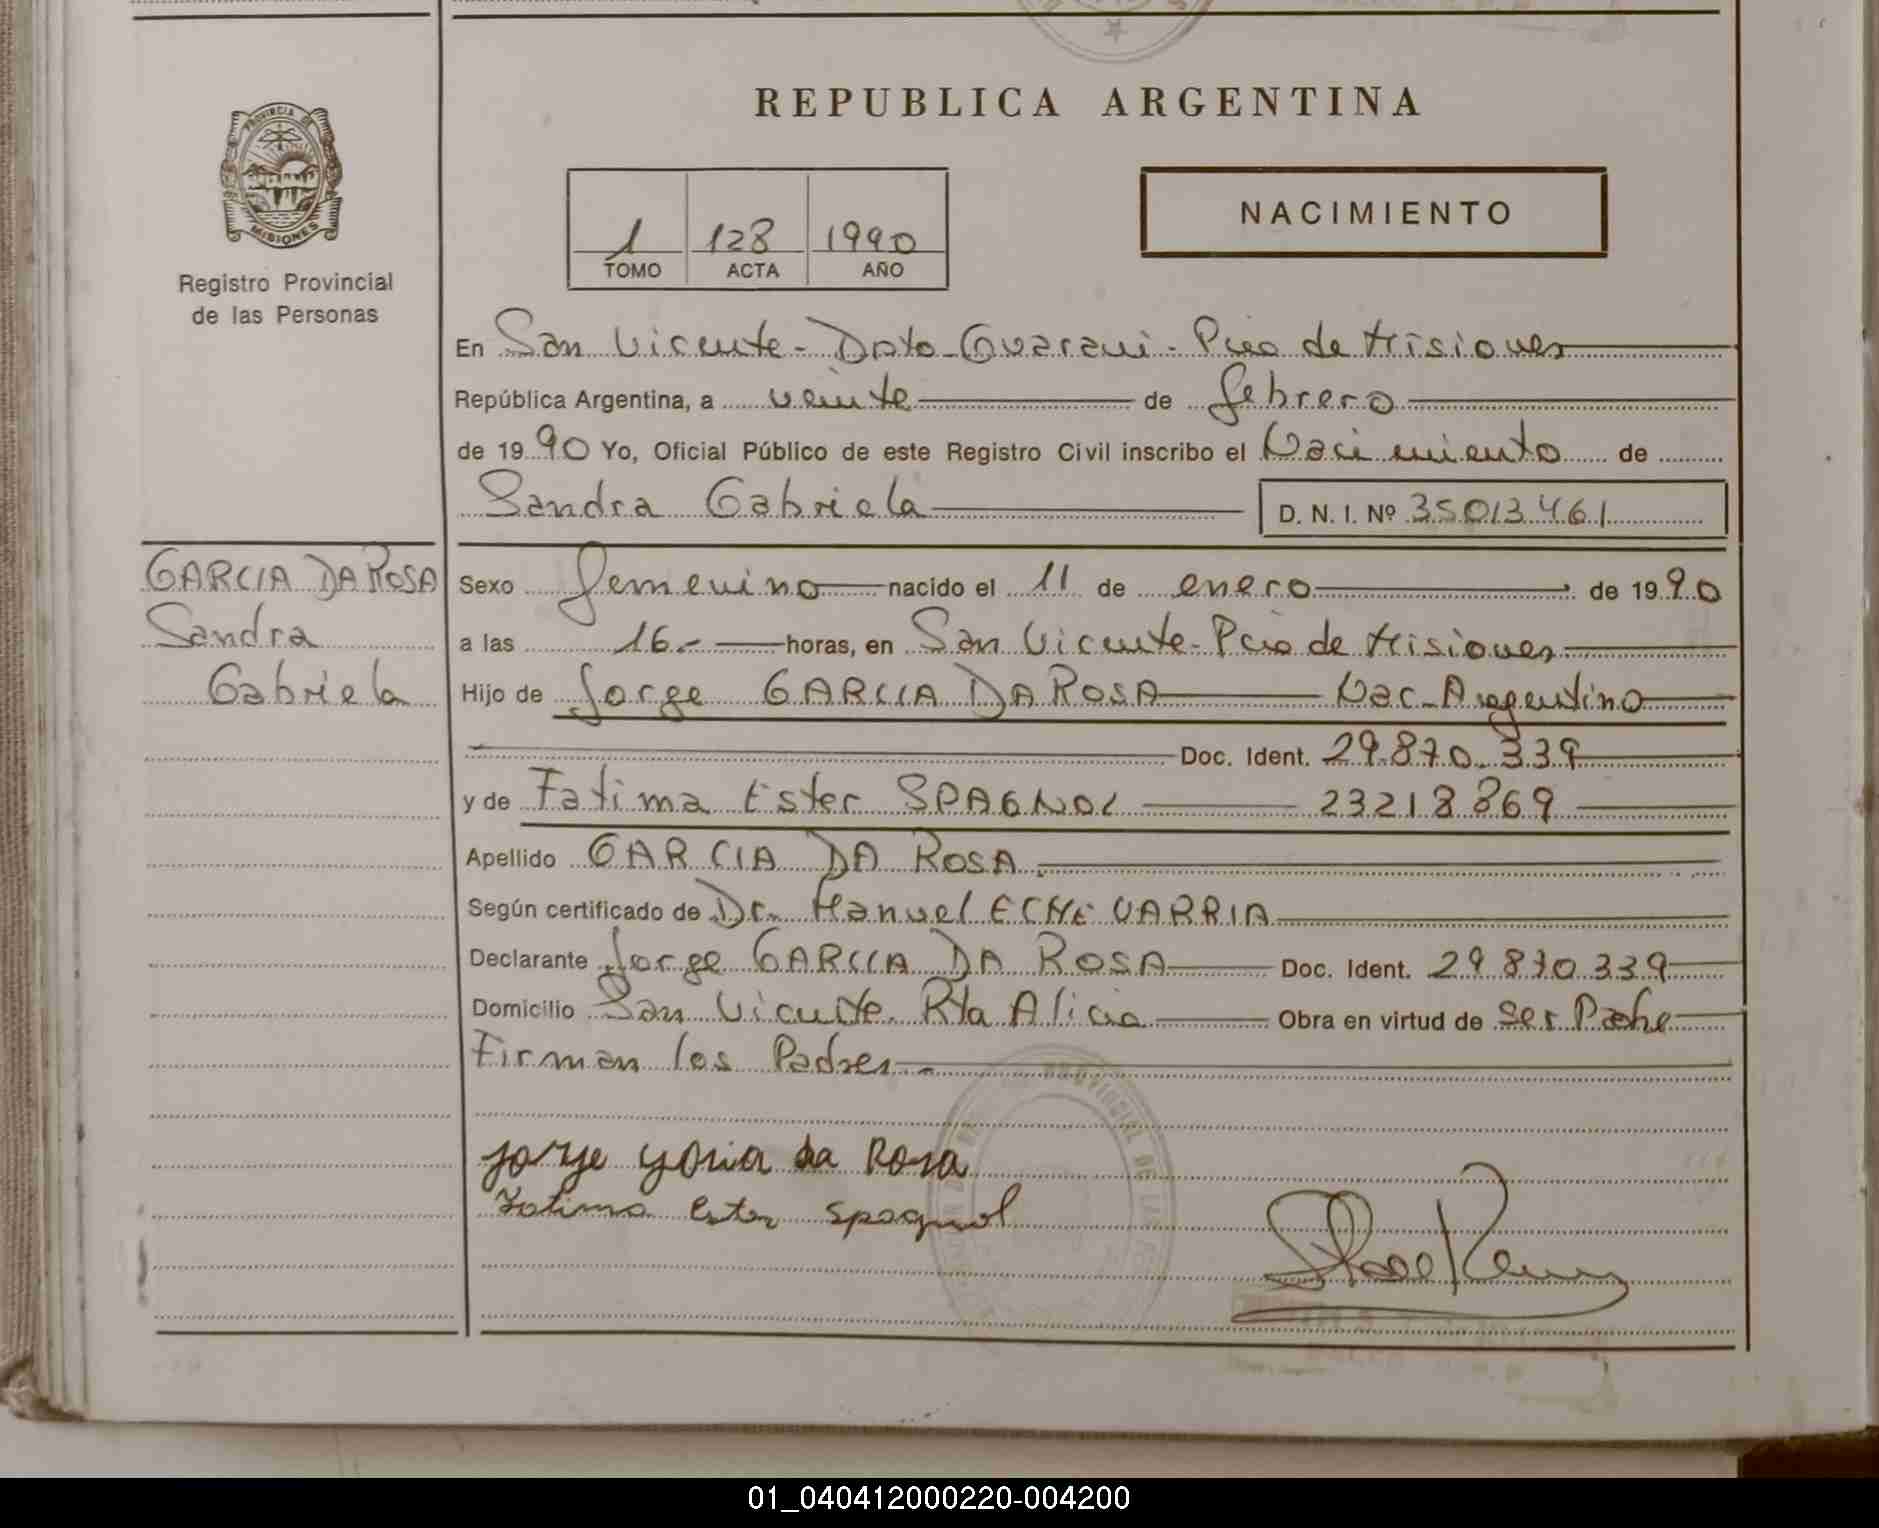 REPUBLICA ARGENTINA
PROVINCIA DE
MISIONES
Registro Provincial
de las Personas
1 128 1990
TOMO ACTA AÑO
NACIMIENTO
En San Vicente - Dpto Guarani - Pcia de Misiones
República Argentina, a veinte de febrero
de 1990 Yo, Oficial Público de este Registro Civil inscribo el Nacimiento de
Sandra Gabriela D. N. I. Nº 35013461
GARCIA DA ROSA
Sandra
Gabriela
Sexo femenino nacido el 11 de enero de 1990
a las 16.- horas, en San Vicente - Pcia de Misiones
Hijo de Jorge GARCIA DA ROSA Nac. Argentino
Doc. Ident. 29.870.339
y de Fatima Ester SPAGNOL 23218869
Apellido GARCIA DA ROSA.
Según certificado de Dr. Manuel ECHEVARRIA
Declarante Jorge GARCIA DA ROSA Doc. Ident. 29.870.339
Domicilio San Vicente. Rta Alicia Obra en virtud de ser Padre
Firman los Padres.-
Jorge da Rosa
Fatima Ester Spagnol
01_040412000220-004200